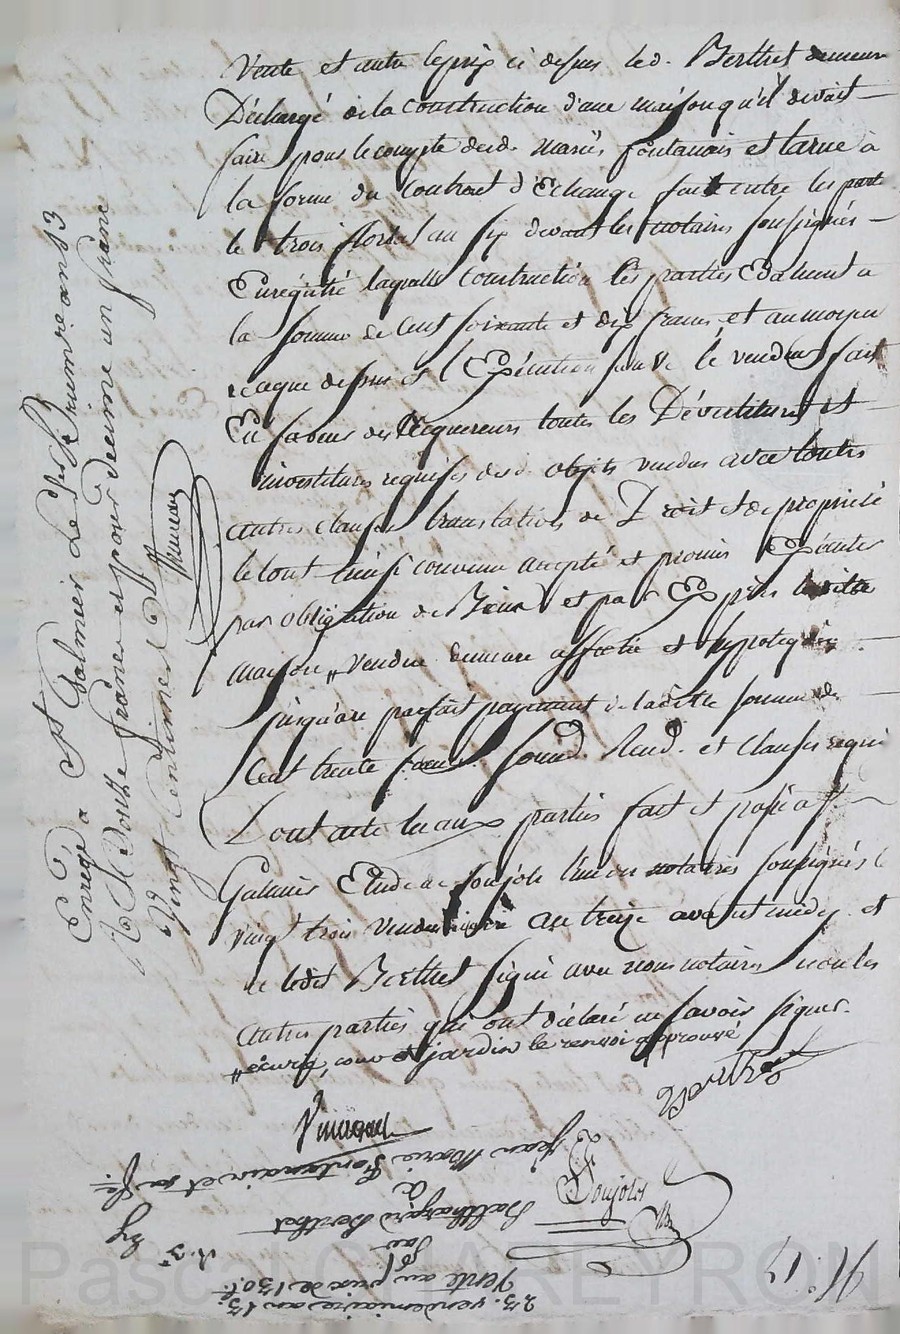 Vente et outre le prix ci dessus led. Berthet demeure
Déchargé de la construction d'une maison qu'il devait
faire pour le compte desd. mariés fontanais et larue à
la forme du Contrat d'Echange fait entre les part
le trois floréal an six devant les notaires soussignés
Enregistré laquelle construction les parties Evaluent a
la somme de Cent soixante et dix francs et au moyen
ce que dessus et l'Exécution le vendeur fait
En faveur des acquereurs toutes les Dévestitures et
investitures requises desd. objets vendus avec toutes
autres clauses translatives de Droit et de propriété
le tout ainsi convenu accepté et promis Exécuter
par obligation de Biens et par Exprès ladite
maison „ vendue demeure affectée et hypotequée
jusqu'au parfait payement de ladite somme de
Cent trente francs. soumd. Rend. et Clauses requi
Dont acte lu aux parties fait et passé a st
Galmier Etude de soujols l'un des notaires soussignés le
vingt trois vendemiaire an treize avant midy et
a ledit Berthet signé avec nous notaires non les
autres parties qui ont déclaré ne savoir signer.
„ écurie, cour et jardin le renvoi approuvé
Berthet
Soujols
Enregé a St Galmier Le Brumaire an 13
Rt Douze francs et pour décime un franc
Vingt centimes
23. vendemiaire an 13.
Vente au prix de 130 f.
par
Balthazard Berthet
A
Jean Marie Fontanais et sa fe.